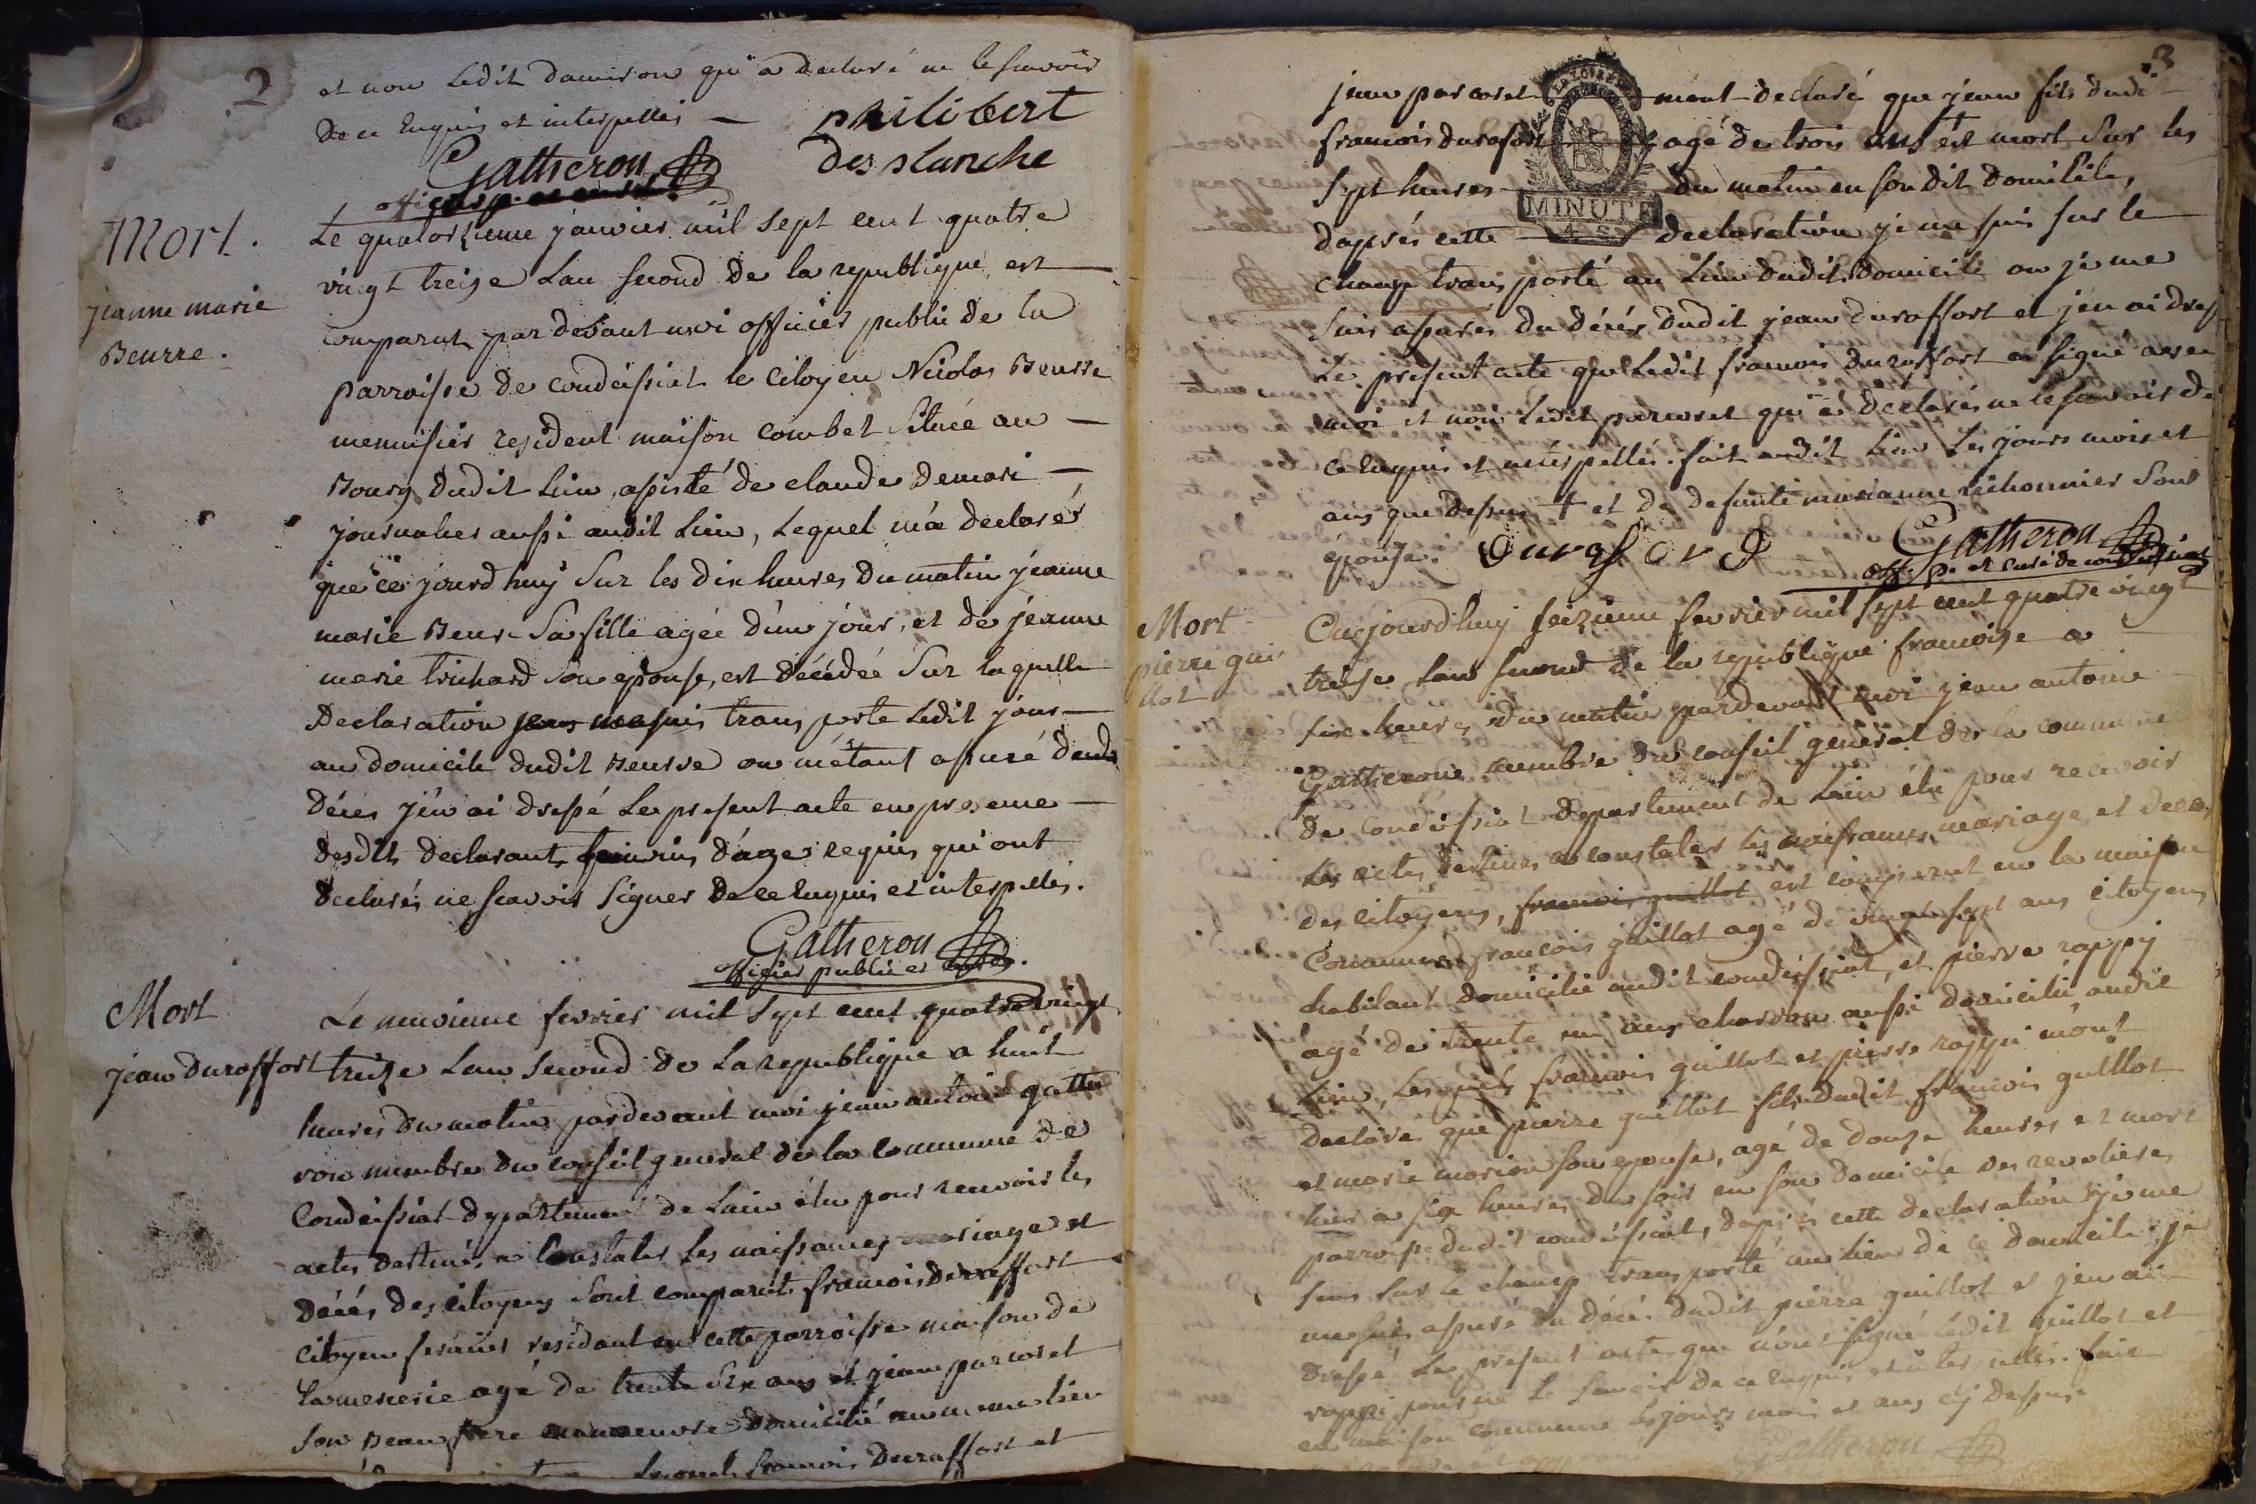 2
et non ledit damiron qui a declaré ne le scavoir
de ce enquis et interpellé —
philibert
des planche
Gatheron
officier p. et curé
Mort.
jeanne marie
Beurre.
Le quatorzieme janvier mil sept cent quatre
vingt treize l'an second de la republique, est
comparut par devant moi officier public de la
parroisse de condeissiat le citoyen Nicolas Beurre
menuisier resident maison combet située au —
Bourg dudit lieu, assisté de claude Demari —
journalier aussi audit lieu, lequel m'a declaré
que ce jourd'huy sur les dix heures du matin jeanne
marie Beure sa fille agée d'un jour, et de jeanne
marie trichard son epouse, est décédée sur laquelle
declaration je me suis transporte ledit jour —
au domicile dudit Beurre ou m'étant assuré dudit
décés j'en ai dressé le present acte en presence —
desdits declarants, temoins d'age requis qui ont
declarés ne scavoir signer de ce enquis et interpellés.
Gatheron
officier public et curé.
Mort
jean duraffort
Le neuvieme fevrier mil sept cent quatre vingt
treize l'an second de la republique a huit
heures du matin pardevant moi jean antoine gathe
ron membre du conseil general de la commune de
Condeissiat departement de l'ain élu pour recevoir les
actes destinés a constater les naissances mariage et
décés des citoyens sont comparut francois duraffort
citoyen fermier residant en cette parroisse maison de
lamercerie agé de trente six ans et jean parcoret
son beau frere manoeuvre domicilié au meme lieu
lequel francois Duraffort et
3
jean parcoret — mont declaré que jean fils dudit
francois durafort — agé de trois ans est mort sur les
sept heures — du matin en son dit domicile,
d'aprés cette — declaration je me suis sur le
champ transporté au lieu dudit domicile ou je me
suis assurés du décés dudit jean duraffort et j'en ai dressé
le present acte que ledit francois duraffort a signé avec
moi et non ledit parcoret qui a déclarés ne le scavoir de
ce enquis et interpellés. fait audit lieu les jours mois et
ans que dessus + et de defunte marianne richonnier sont
épouse.
MINUTE
4 S
Durafort
Gatheron
off. p. et curé de condeissiat
Mort
pierre gui
llot
Cejourd'huy seizieme fevrier mil sept cent quatre vingt
treize l'an second de la republique francoise a —
six heures du matin pardevant moi jean antoine
Gatheron membre du conseil general de la commune
de Condeissiat departement de l'ain élu pour recevoir
les actes destinés a constater les naissances, mariage et decés
des citoyens, francois guillot est comparut en la maison
Commune francois guillot agé de vingt sept ans citoyens
habitant domicilié audit condeissiat, et pierre rappy
agé de trente un ans charron aussi domicilié audit
lieu, lesquels francois guillot et pierre rappy m'ont
declaré que pierre guillot fils dudit francois guillot
et marie morion son epouse, agé de douze heures et mort
hier a six heures du soir en son domicile des revolieres
parroisse dudit condeissiat, d'aprés cette declaration je me
suis sur le champ transporté au lieu de ce domicile, je
me suis assuré du décés dudit pierre guillot et j'en ai
dressé le present acte que n'ont signé ledit guillot et
rappy pour ne le scavoir de ce enquis et interpellés. fait
en maison commune les jours mois et ans cy dessus
Gatheron